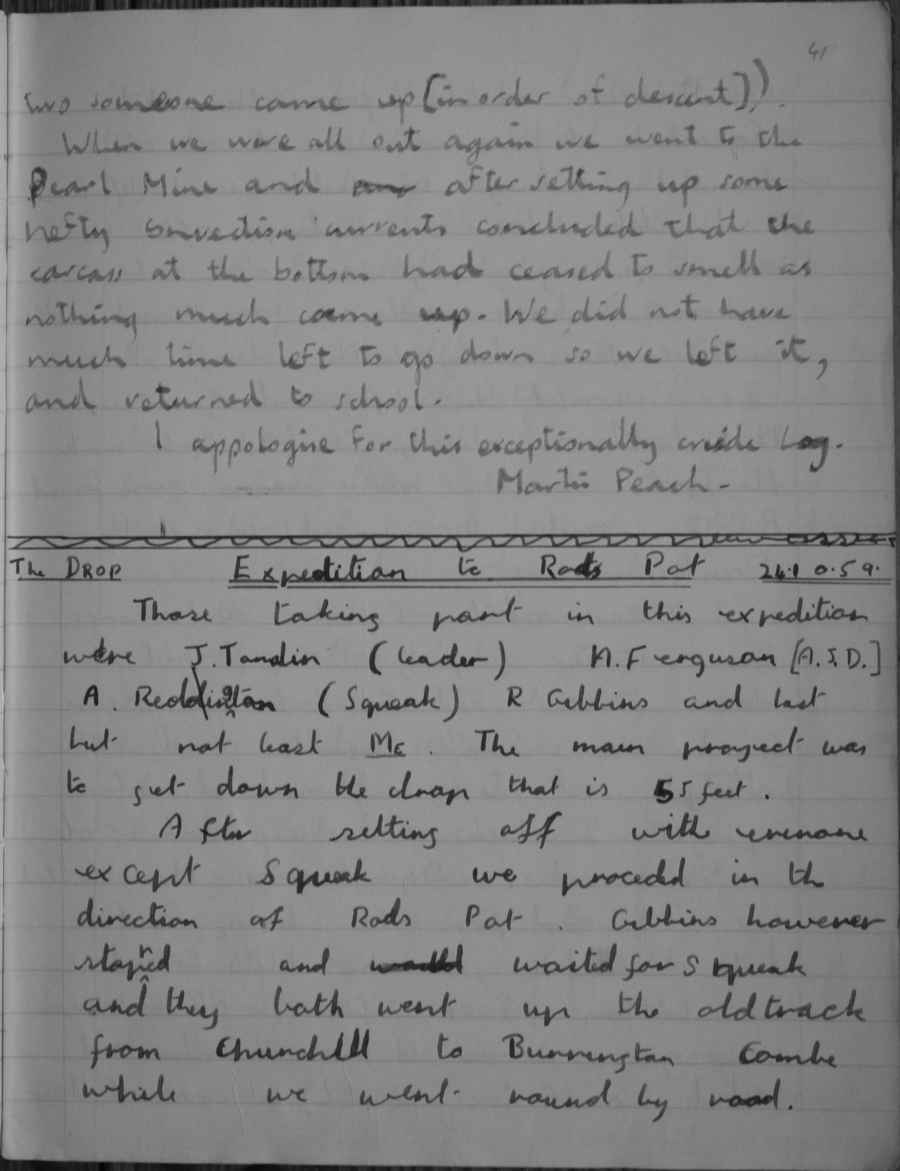 41
two someone came up [in order of descent]).
When we were all out again we went to the
Pearl Mine and after setting up some
hefty convection currents concluded that the
carcass at the bottom had ceased to smell as
nothing much came up. We did not have
much time left to go down so we left it,
and returned to school.
I appologise for this exceptionally crude Log.
Martin Peach -
The DROP Expedition to Rods Pot 24.10.59.
Those taking part in this expedition
were J. Tandin (leader) A. Ferguson [A.S.D.]
A. Reddington (Squeak) R Gibbins and last
but not least Me. The main proyect was
to get down the drop that is 55 feet.
After setting off with everyone
except Squeak we procedd in th
direction of Rods Pot. Gibbins however
stopped and waited for Squeak
and they both went up the old track
from Churchill to Burrengtan Combe
while we went round by road.